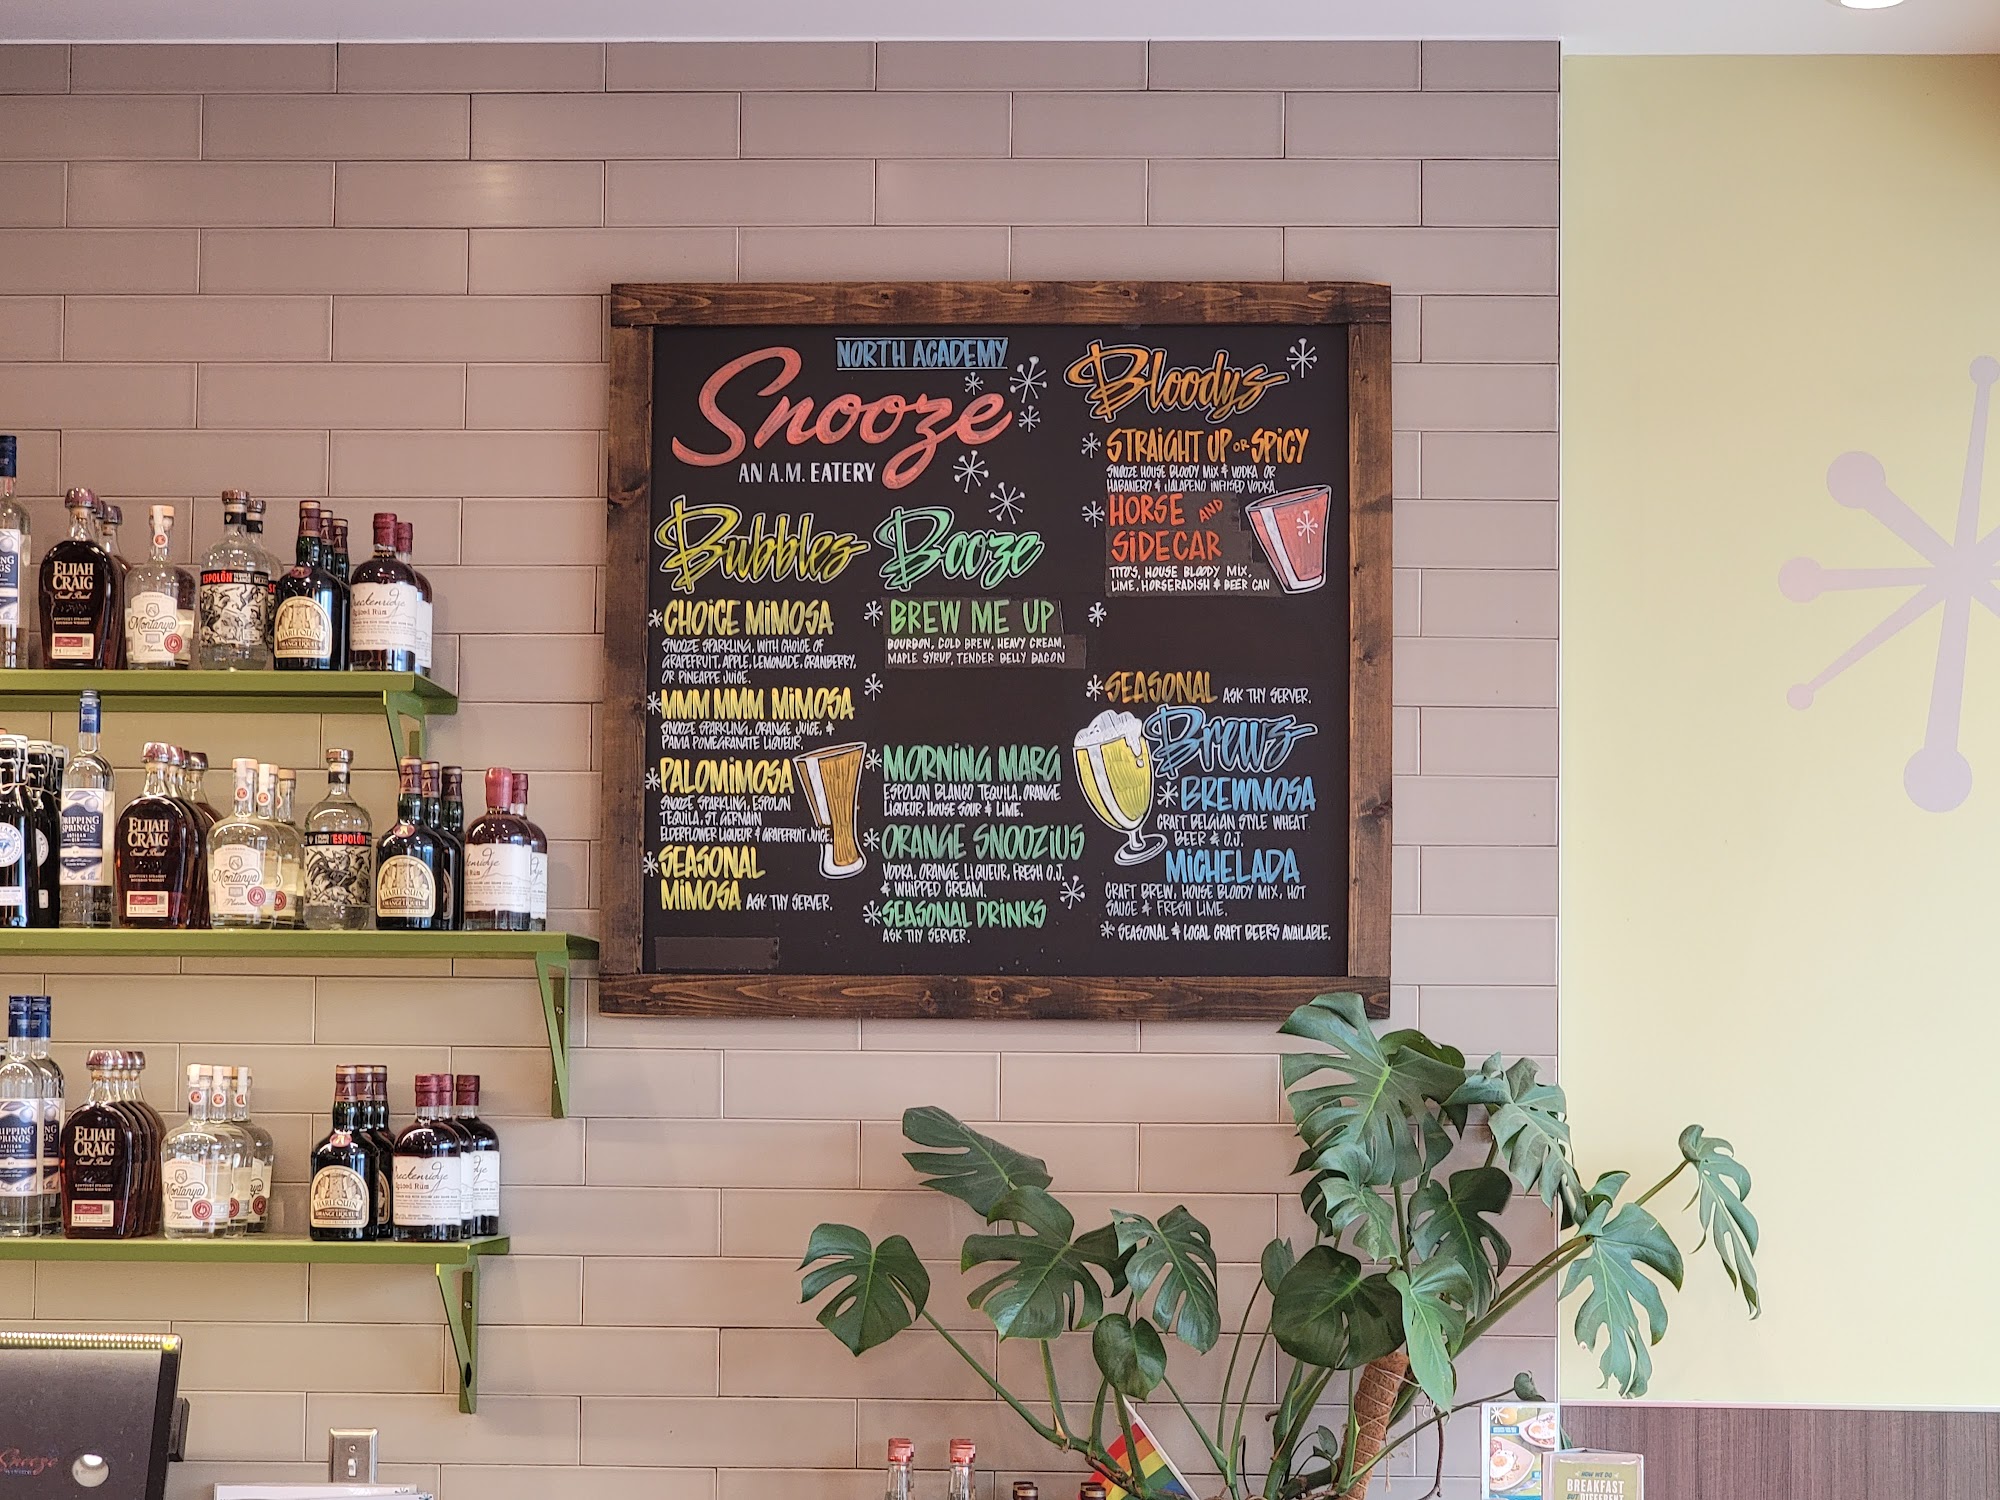 NORTH ACADEMY
Snooze
AN A.M. EATERY
Bubbles
CHOICE MIMOSA
SNOOZE SPARKLING, WITH CHOICE OF
GRAPEFRUIT, APPLE, LEMONADE, CRANBERRY,
OR PINEAPPE JUICE.
MMM MMM MIMOSA
SNOOZE SPARKLING, ORANGE JUICE, &
PAMA POMEGRANATE LIQUEUR.
PALOMIMOSA
SNOOZE SPARKLING, ESPOLON
TEQUILA, ST. GERMAIN
ELDERFLOWER LIQUEUR & GRAPEFRUIT JUICE.
SEASONAL
MIMOSA ASK THY SERVER.
Booze
BREW ME UP
BOURBON, COLD BREW, HEAVY CREAM,
MAPLE SYRUP, TENDER BELLY BACON
MORNING MARG
ESPOLON BLANCO TEQUILA, ORANGE
LIQUEUR, HOUSE SOUR & LIME.
ORANGE SNOOZIUS
VODKA, ORANGE LIQUEUR, FRESH O.J.
& WHIPPED CREAM.
SEASONAL DRINKS
ASK THY SERVER.
Bloodys
STRAIGHT UP OR SPICY
SNOOZE HOUSE BLOODY MIX & VODKA OR
HABANERO & JALAPENO INFUSED VODKA.
HORSE AND
SIDECAR
TITO'S, HOUSE BLOODY MIX,
LIME, HORSERADISH & BEER CAN
SEASONAL ASK THY SERVER.
Brews
BREWMOSA
CRAFT BELGIAN STYLE WHEAT
BEER & O.J.
MICHELADA
CRAFT BREW, HOUSE BLOODY MIX, HOT
SAUCE & FRESH LIME.
SEASONAL & LOCAL CRAFT BEERS AVAILABLE.
ELIJAH
CRAIG
Small Batch
Montanya
ESPOLÒN
HARLEQUIN
ORANGE LIQUEUR
eckenridge
Spiced Rum
RIPPING
SPRINGS
ELIJAH
CRAIG
Small Batch
Montanya
ESPOLÒN
HARLEQUIN
ORANGE LIQUEUR
RIPPING
SPRINGS
ELIJAH
CRAIG
Small Batch
Montanya
HARLEQUIN
ORANGE LIQUEUR
eckenridge
Spiced Rum
Snooze
HOW WE DO
BREAKFAST
BUT DIFFERENT